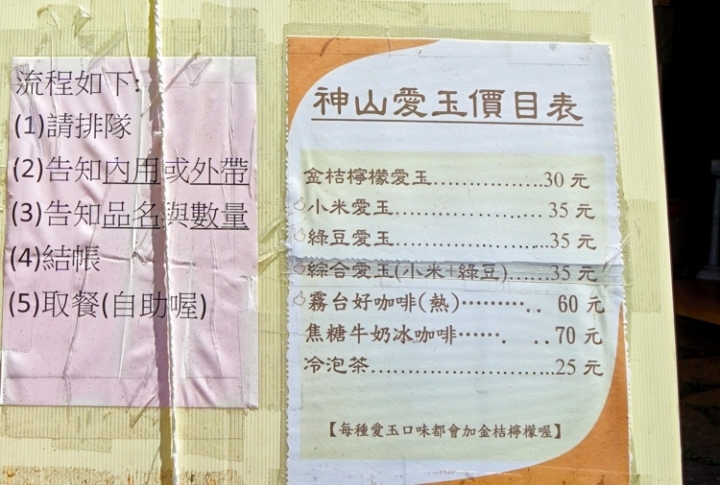 流程如下:
(1)請排隊
(2)告知內用或外帶
(3)告知品名與數量
(4)結帳
(5)取餐(自助喔)
神山愛玉價目表
金桔檸檬愛玉................30元
小米愛玉......................35元
綠豆愛玉......................35元
綜合愛玉(小米+綠豆)......35元
霧台好咖啡(熱)⋯⋯⋯.. 60元
焦糖牛奶冰咖啡⋯⋯. . ..70元
冷泡茶..........................25元
【每種愛玉口味都會加金桔檸檬喔】